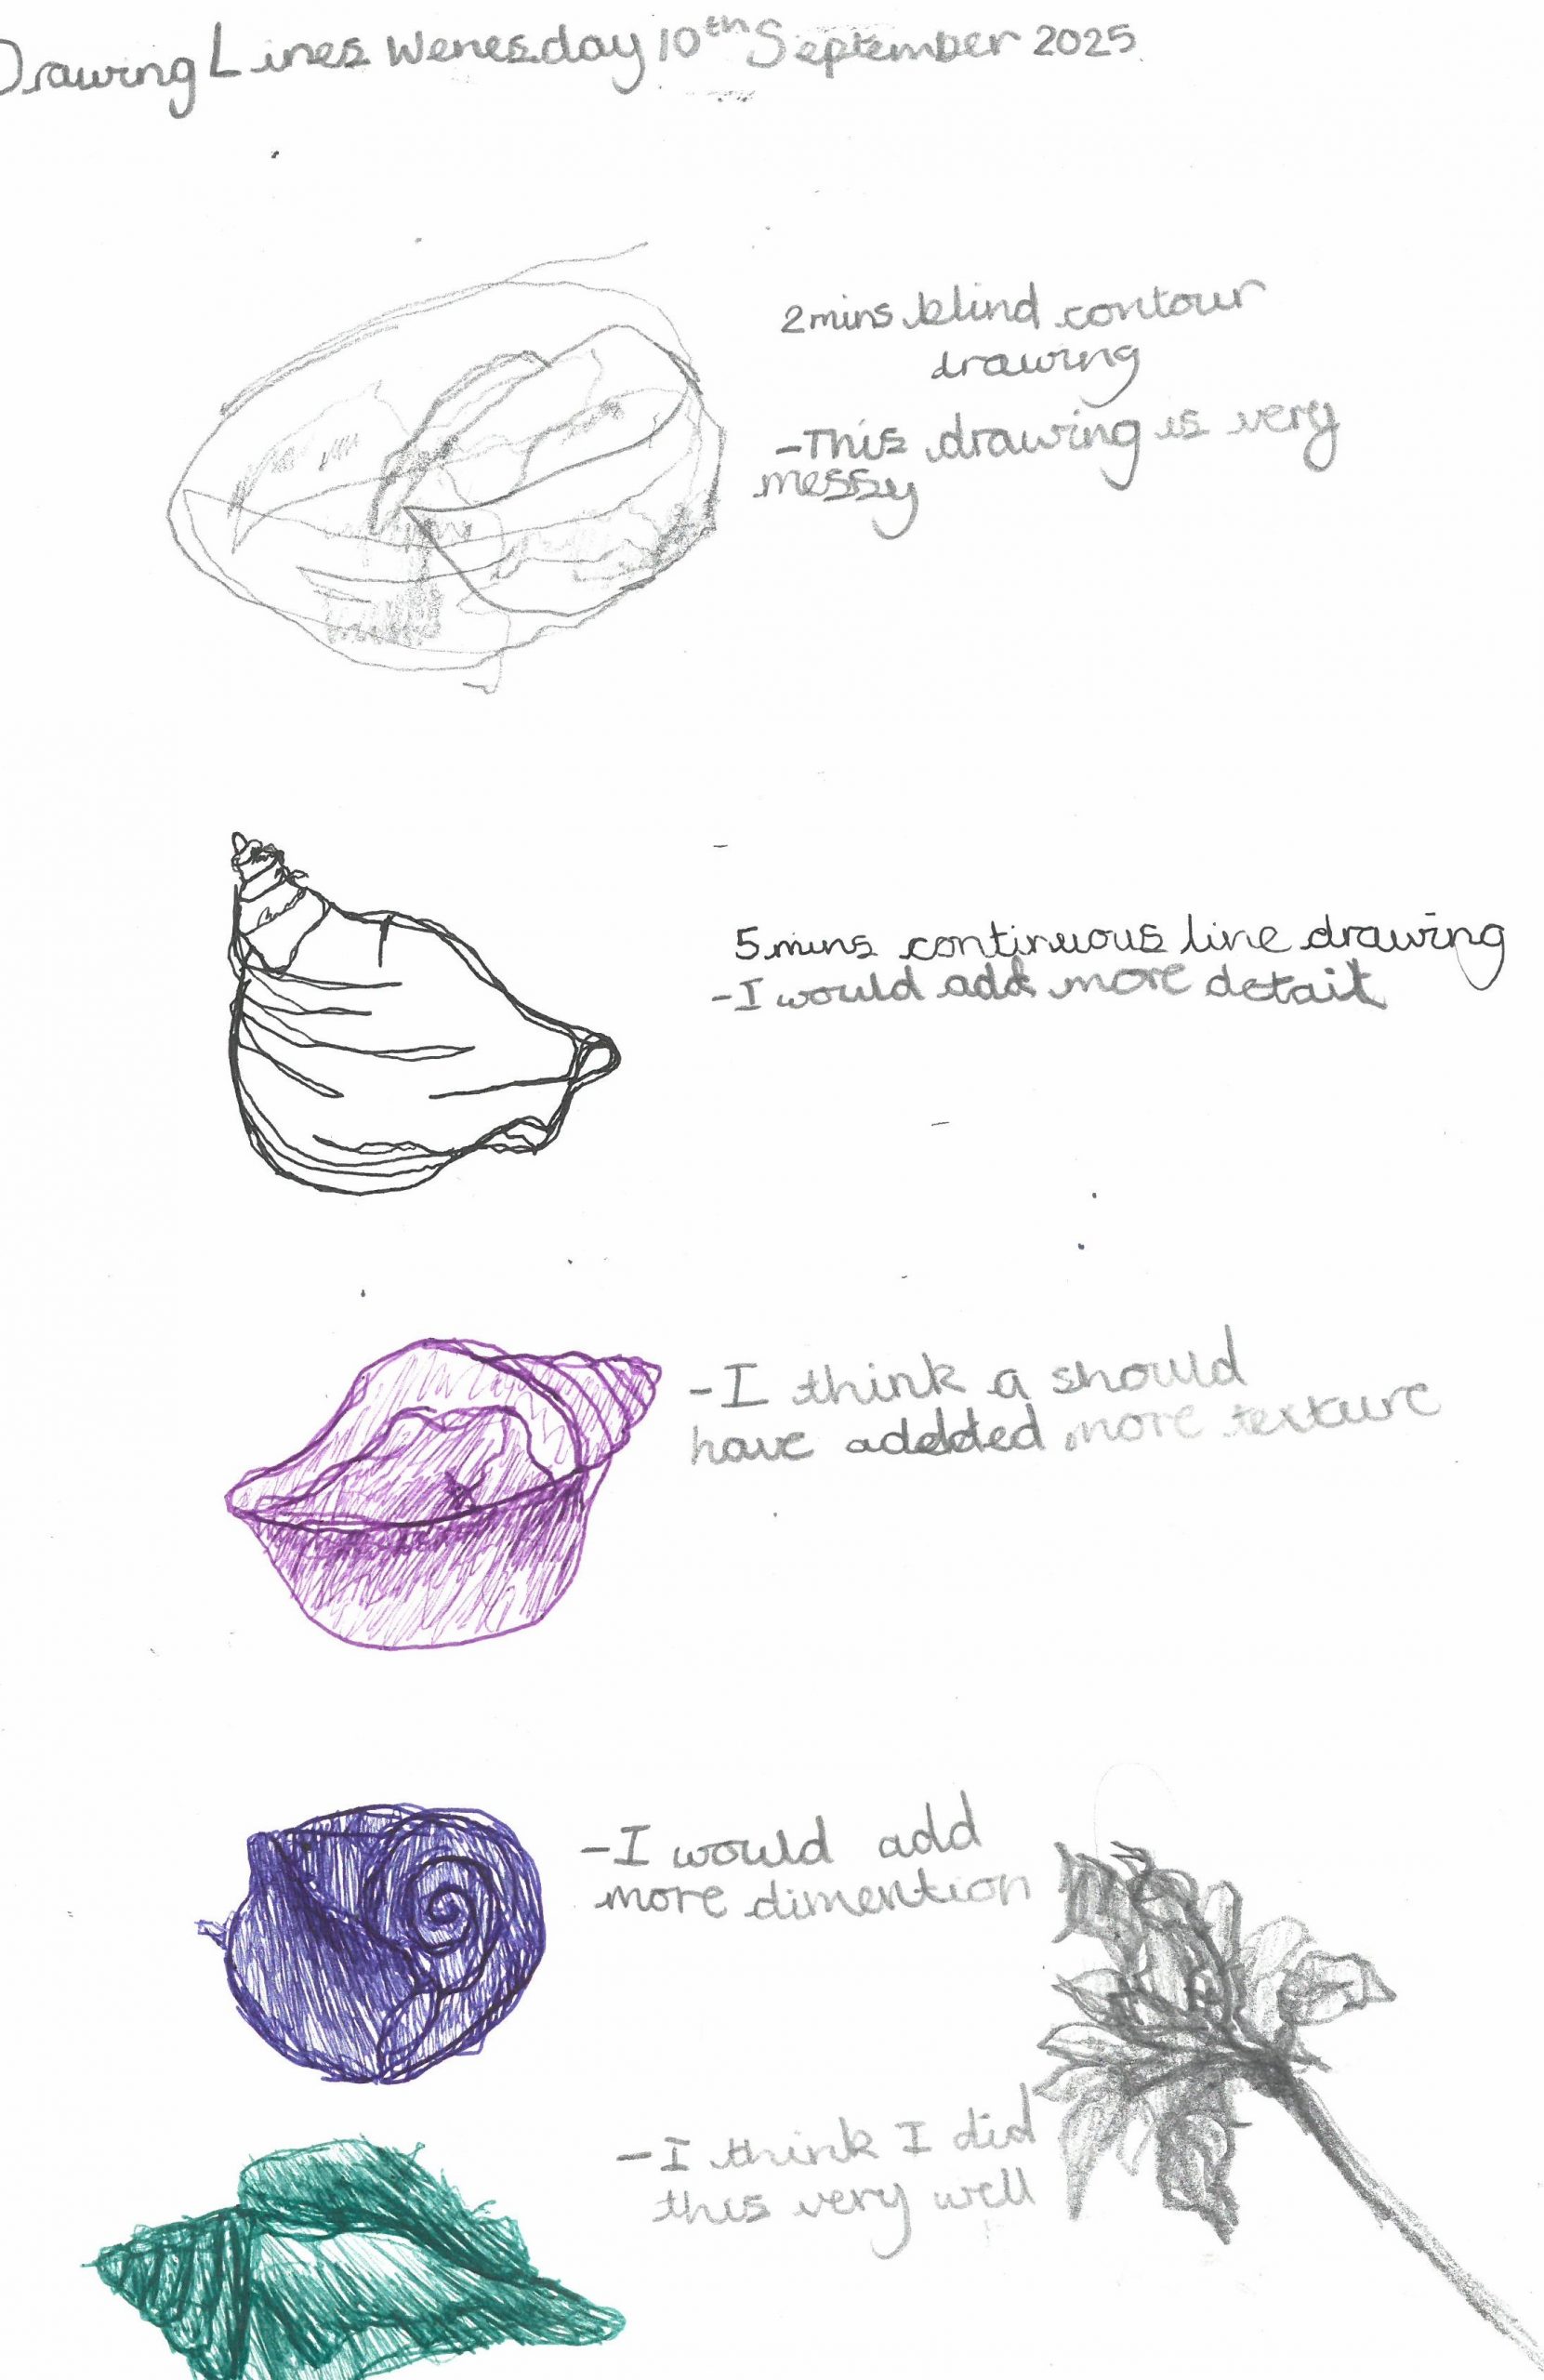 Drawing Lines Wenesday 10th September 2025
2mins blind contour
drawing
-This drawing is very
messy
5mins continuous line drawing
-I would add more detail
-I think a should
have addded more texture
-I would add
more dimention
-I think I did
this very well